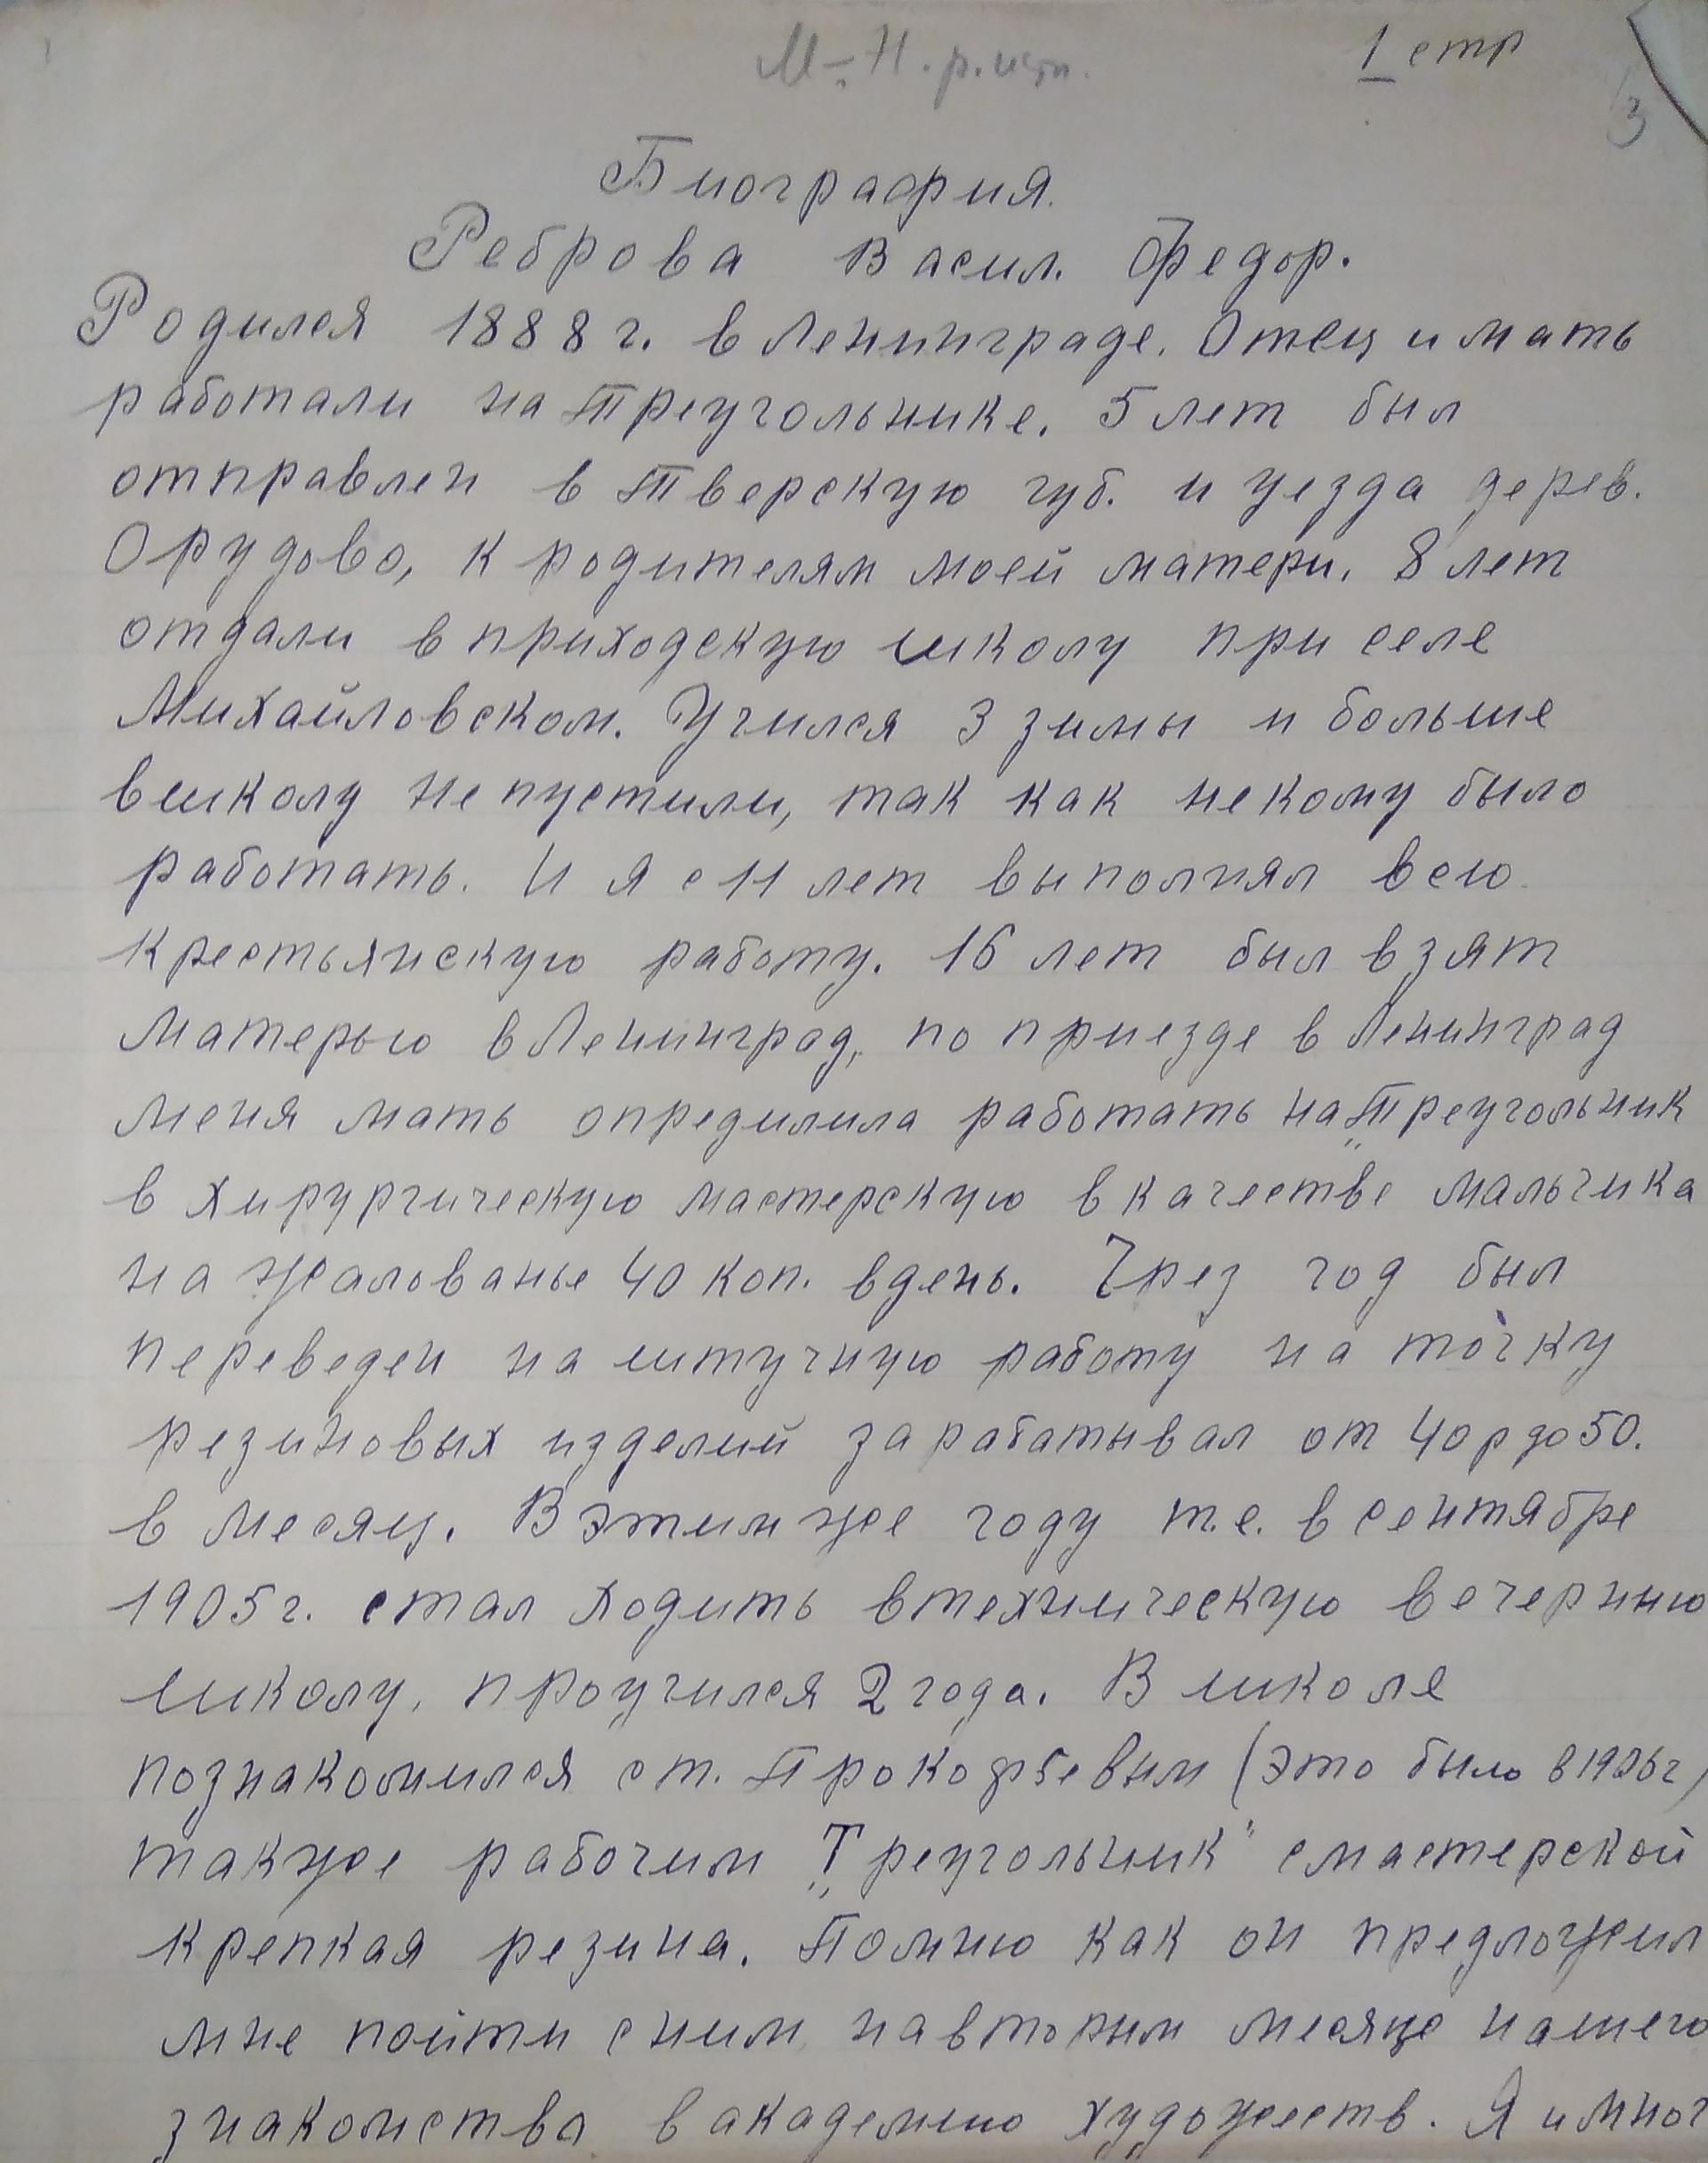 1 стр
3
Биография.
Реброва Васил. Федор.
Родился 1888 г. в Ленинграде. Отец и мать
работали на Треугольнике. 5 лет был
отправлен в Тверскую губ. и уезда дерев.
Орудово, к родителям моей матери. 8 лет
отдали в приходскую школу при селе
Михайловском. Учился 3 зимы и больше
в школу не пустили, так как некому было
работать. И я с 11 лет выполнял всю
крестьянскую работу. 16 лет был взят
матерью в Ленинград, по приезде в Ленинград
меня мать определила работать на „Треугольник
в хирургическую мастерскую в качестве мальчика
на жалованье 40 коп. в день. Чрез год был
переведен на штучную работу на точку
резиновых изделий зарабатывал от 40 р до 50.
в месяц. В этим же году т.е. в сентябре
1905 г. стал ходить в техническую вечернию
школу, проучился 2 года. В школе
познакомился с т. Прокофьевым (это было в 1906 г)
также рабочим „Треугольник" с мастерской
крепкая резина. Помню как он предложил
мне пойти с ним на вторым месяце нашего
знакомства в академию художеств. Я и мног